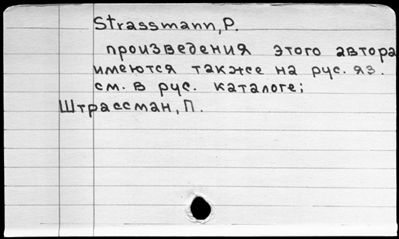 Strassmann, P.
произведения этого автора
имеются также на рус. яз.
см. в рус. каталоге;
Штрассман, П.